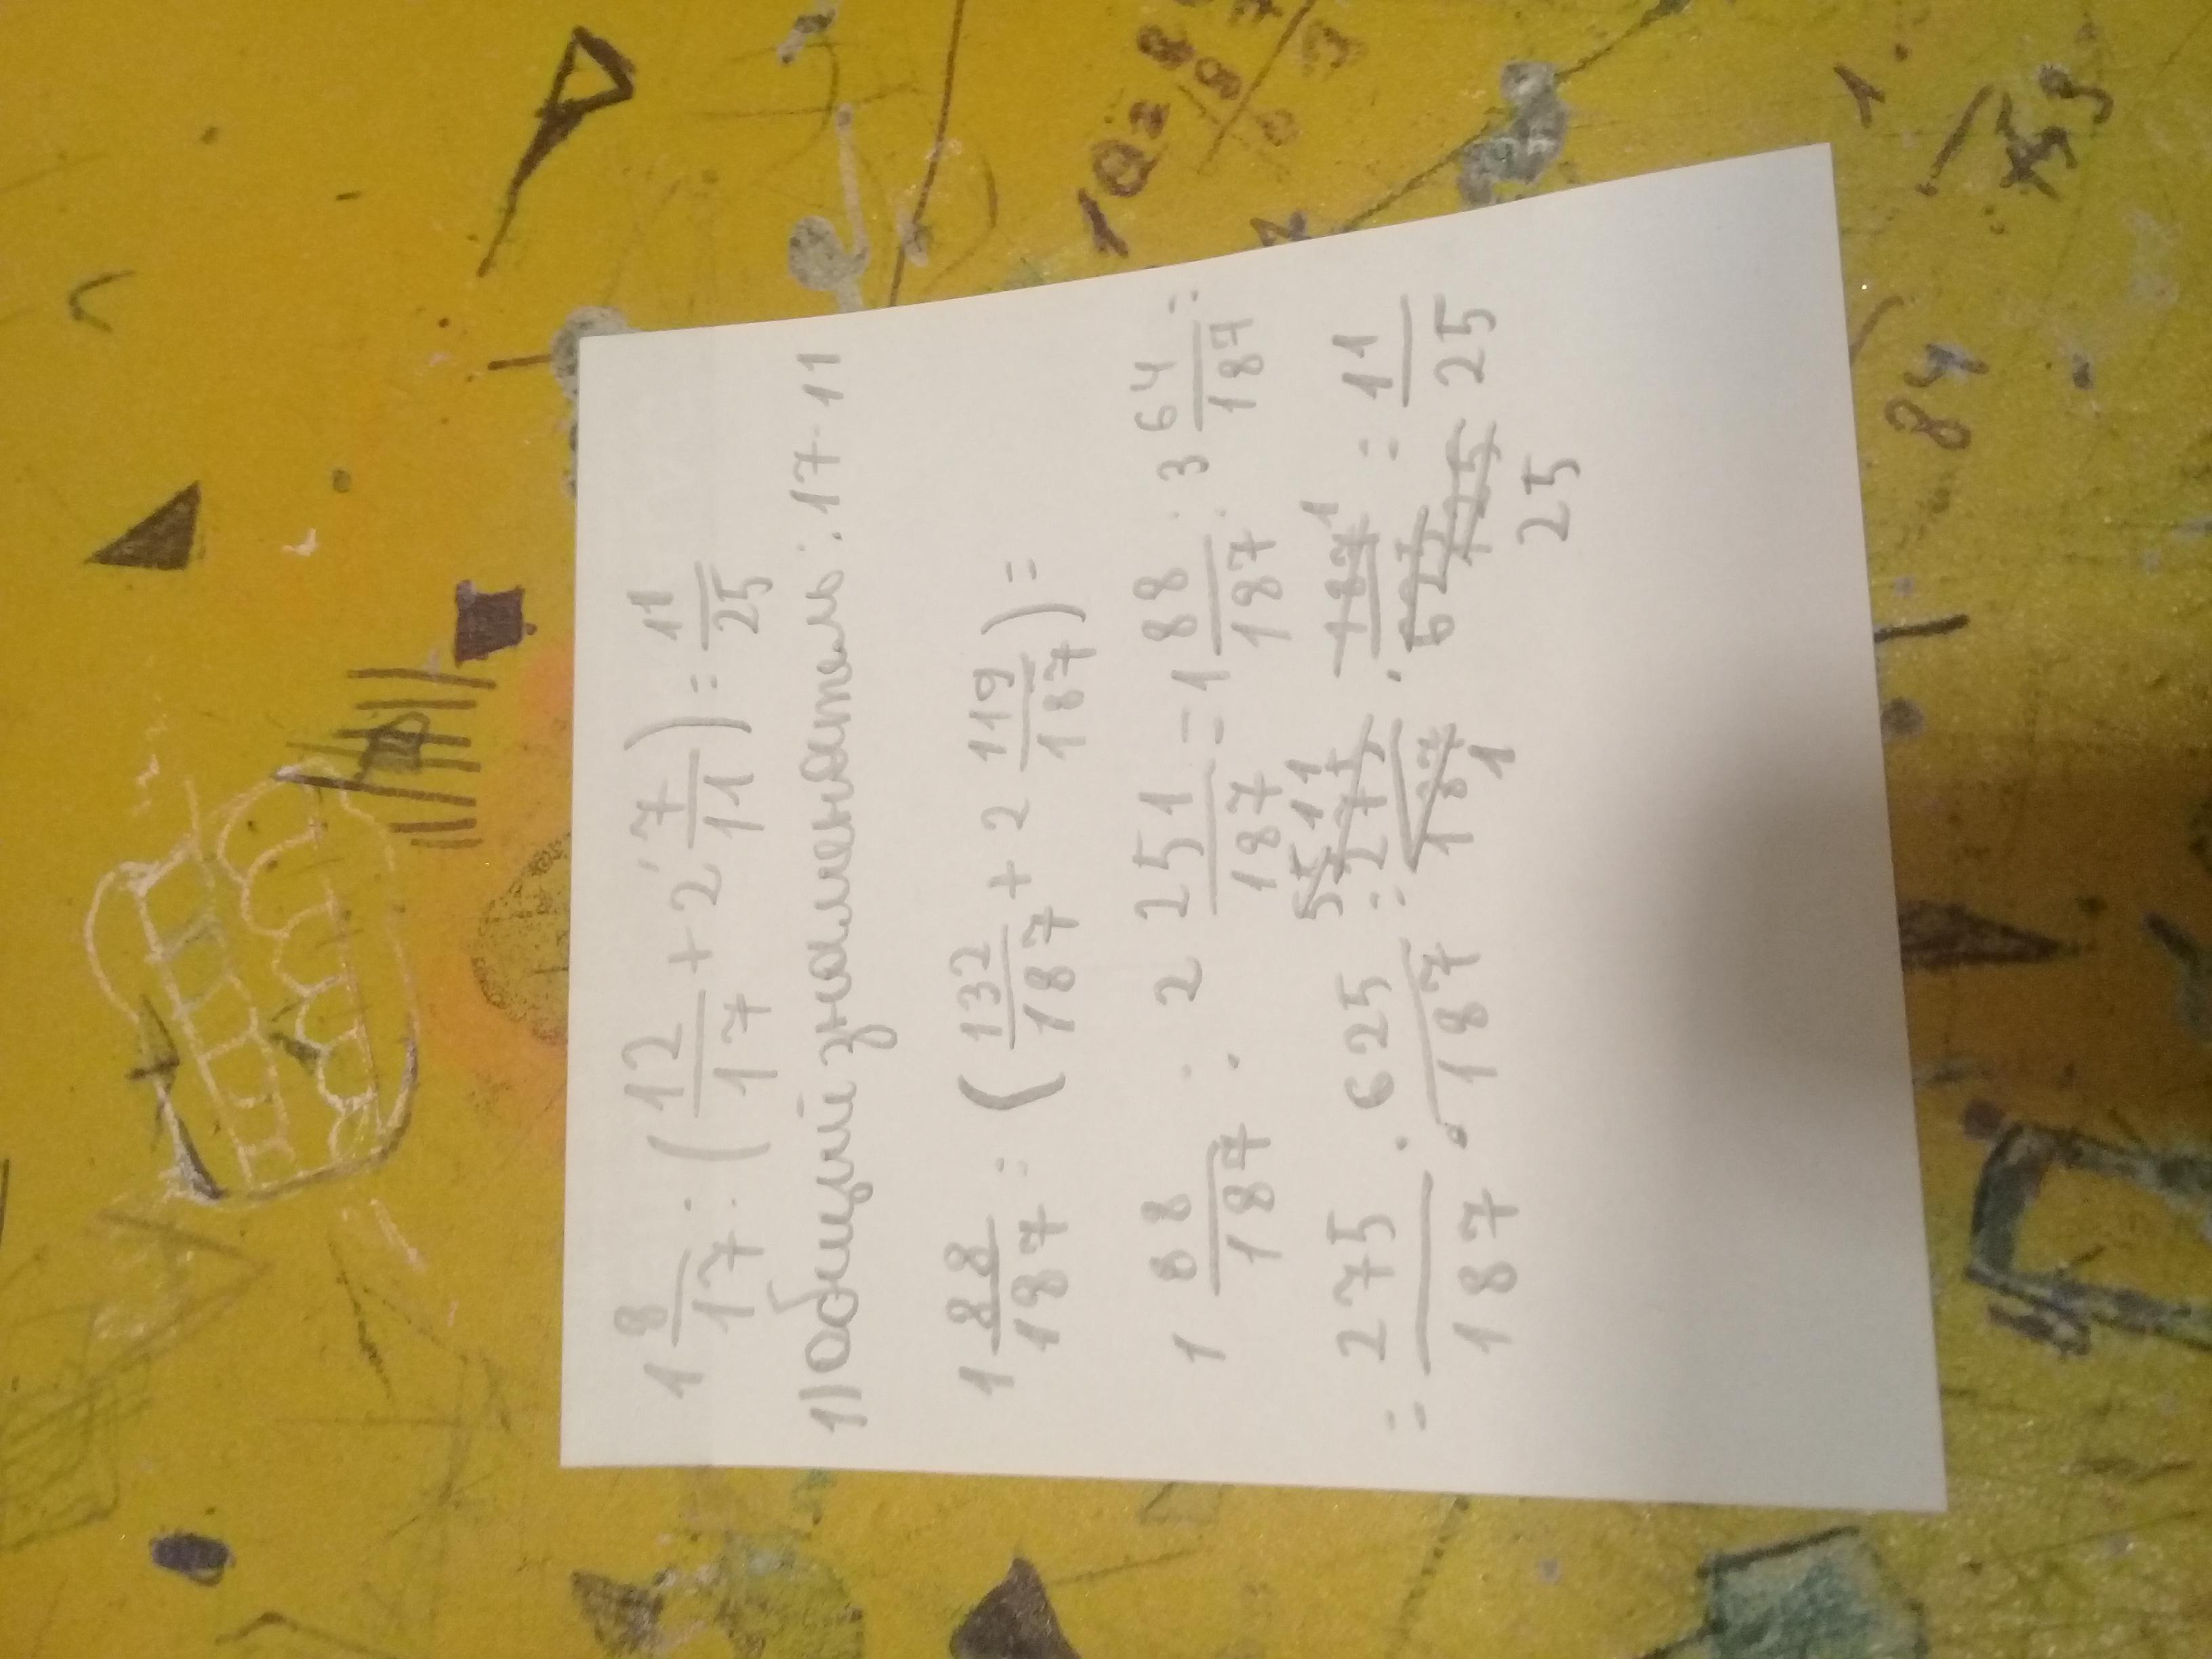 1 8/17 : (12/17 + 2 7/11) = 11/25
1) общий знаменатель: 17·11
1 88/187 : (132/187 + 2 119/187) =
1 88/187 : 2 251/187 = 1 88/187 : 3 64/187 =
= 275/187 : 625/187 = 55 11 275/187 1 · 187 1/625 125 25 = 11/25
102
84